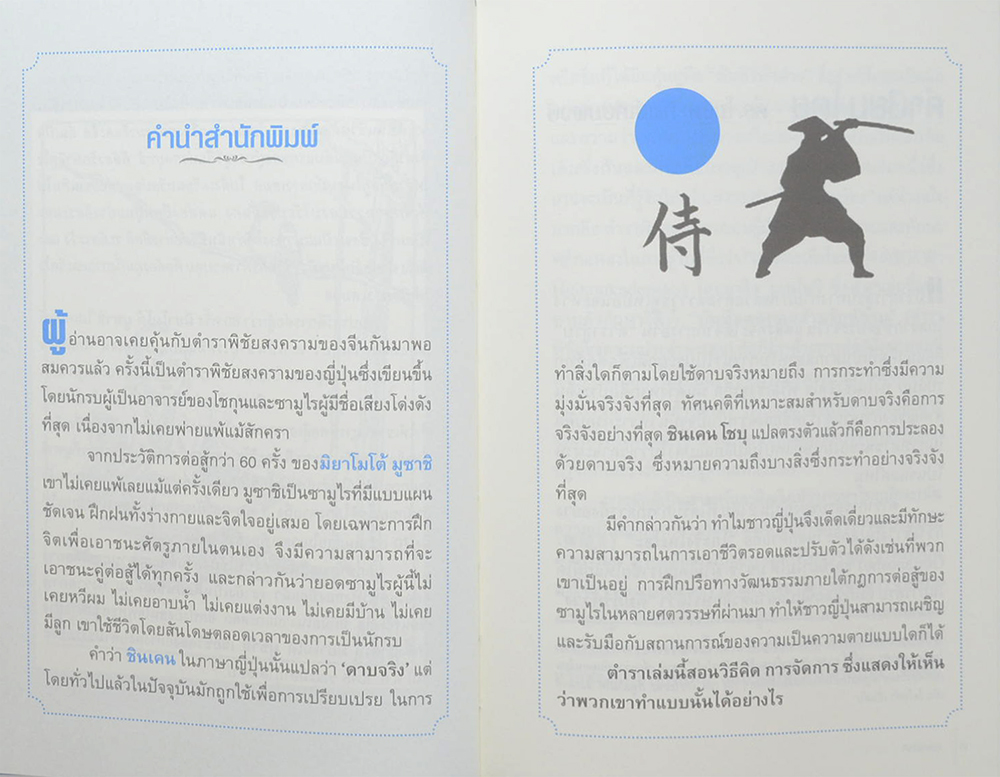 คำนำสำนักพิมพ์
ผู้อ่านอาจเคยคุ้นกับตำราพิชัยสงครามของจีนกันมาพอ
สมควรแล้ว ครั้งนี้เป็นตำราพิชัยสงครามของญี่ปุ่นซึ่งเขียนขึ้น
โดยนักรบผู้เป็นอาจารย์ของโชกุนและซามูไรผู้มีชื่อเสียงโด่งดัง
ที่สุด เนื่องจากไม่เคยพ่ายแพ้แม้สักครา
จากประวัติการต่อสู้กว่า 60 ครั้ง ของมิยาโมโต้ มูซาชิ
เขาไม่เคยแพ้เลยแม้แต่ครั้งเดียว มูซาชิเป็นซามูไรที่มีแบบแผน
ชัดเจน ฝึกฝนทั้งร่างกายและจิตใจอยู่เสมอ โดยเฉพาะการฝึก
จิตเพื่อเอาชนะศัตรูภายในตนเอง จึงมีความสามารถที่จะ
เอาชนะคู่ต่อสู้ได้ทุกครั้ง และกล่าวกันว่ายอดซามูไรผู้นี้ไม่
เคยหวีผม ไม่เคยอาบน้ำ ไม่เคยแต่งงาน ไม่เคยมีบ้าน ไม่เคย
มีลูก เขาใช้ชีวิตโดยสันโดษตลอดเวลาของการเป็นนักรบ
คำว่า ชินเคน ในภาษาญี่ปุ่นนั้นแปลว่า ‘ดาบจริง’ แต่
โดยทั่วไปแล้วในปัจจุบันมักถูกใช้เพื่อการเปรียบเปรย ในการ
侍
ทำสิ่งใดก็ตามโดยใช้ดาบจริงหมายถึง การกระทำซึ่งมีความ
มุ่งมั่นจริงจังที่สุด ทัศนคติที่เหมาะสมสำหรับดาบจริงคือการ
จริงจังอย่างที่สุด ชินเคน โชบุ แปลตรงตัวแล้วก็คือการประลอง
ด้วยดาบจริง ซึ่งหมายความถึงบางสิ่งซึ่งกระทำอย่างจริงจัง
ที่สุด
มีคำกล่าวกันว่า ทำไมชาวญี่ปุ่นจึงเด็ดเดี่ยวและมีทักษะ
ความสามารถในการเอาชีวิตรอดและปรับตัวได้ดังเช่นที่พวก
เขาเป็นอยู่ การฝึกปรือทางวัฒนธรรมภายใต้กฎการต่อสู้ของ
ซามูไรในหลายศตวรรษที่ผ่านมา ทำให้ชาวญี่ปุ่นสามารถเผชิญ
และรับมือกับสถานการณ์ของความเป็นความตายแบบใดก็ได้
ตำราเล่มนี้สอนวิธีคิด การจัดการ ซึ่งแสดงให้เห็น
ว่าพวกเขาทำแบบนั้นได้อย่างไร